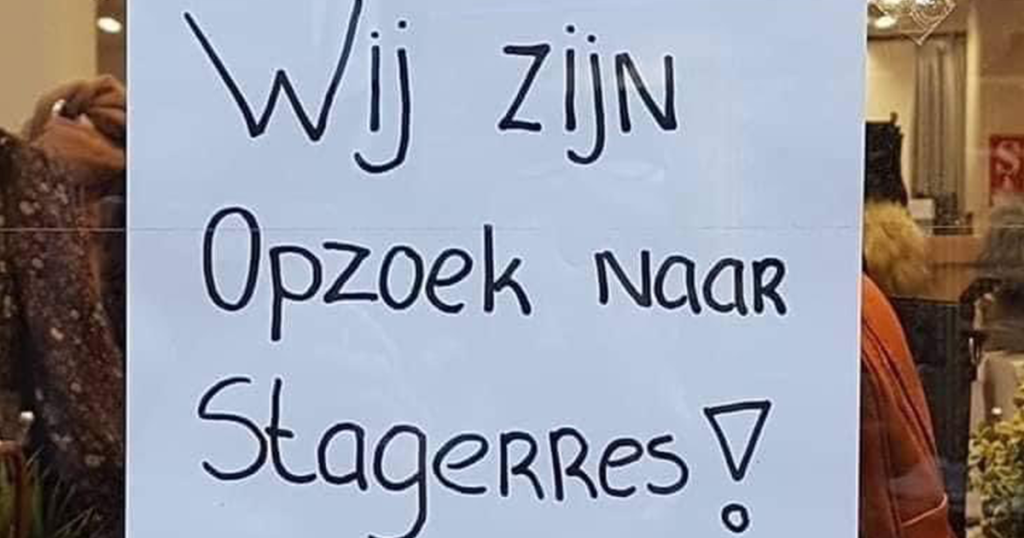 Wij zijn
Opzoek naar
Stagerres!